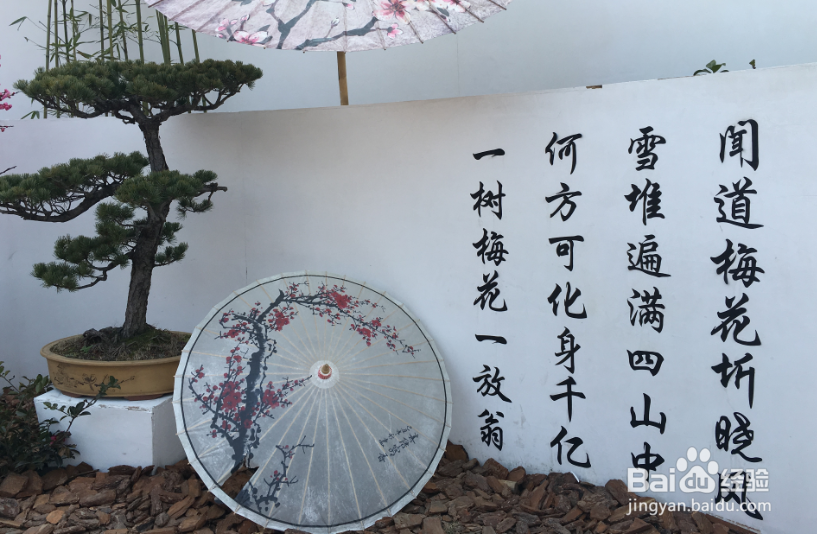 闻道梅花圻晓风
雪堆遍满四山中
何方可化身千亿
一树梅花一放翁
Baidu 经验
jingyan.baidu.com